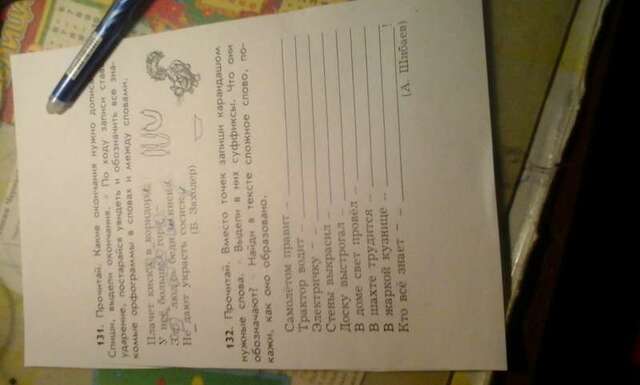 131. Прочитай. Какие окончания нужно допис
Спиши, выдели окончания. По ходу записи став
ударение, постарайся увидеть и обозначить все зна-
комые орфограммы в словах и между словами.
Плачет киска в коридоре.
У неё большое горе:
Злые люди бедной киске
Не дают украсть сосиски.
(Б. Заходер)
132. Прочитай. Вместо точек запиши карандашом
нужные слова. Выдели в них суффиксы. Что они
обозначают? Найди в тексте сложное слово, по-
кажи, как оно образовано.
Самолётом правит –
Трактор водит –
Электричку –
Стены выкрасил –
Доску выстрогал –
В доме свет провёл –
В шахте трудится –
В жаркой кузнице –
Кто всё знает – !
(А. Шибаев)